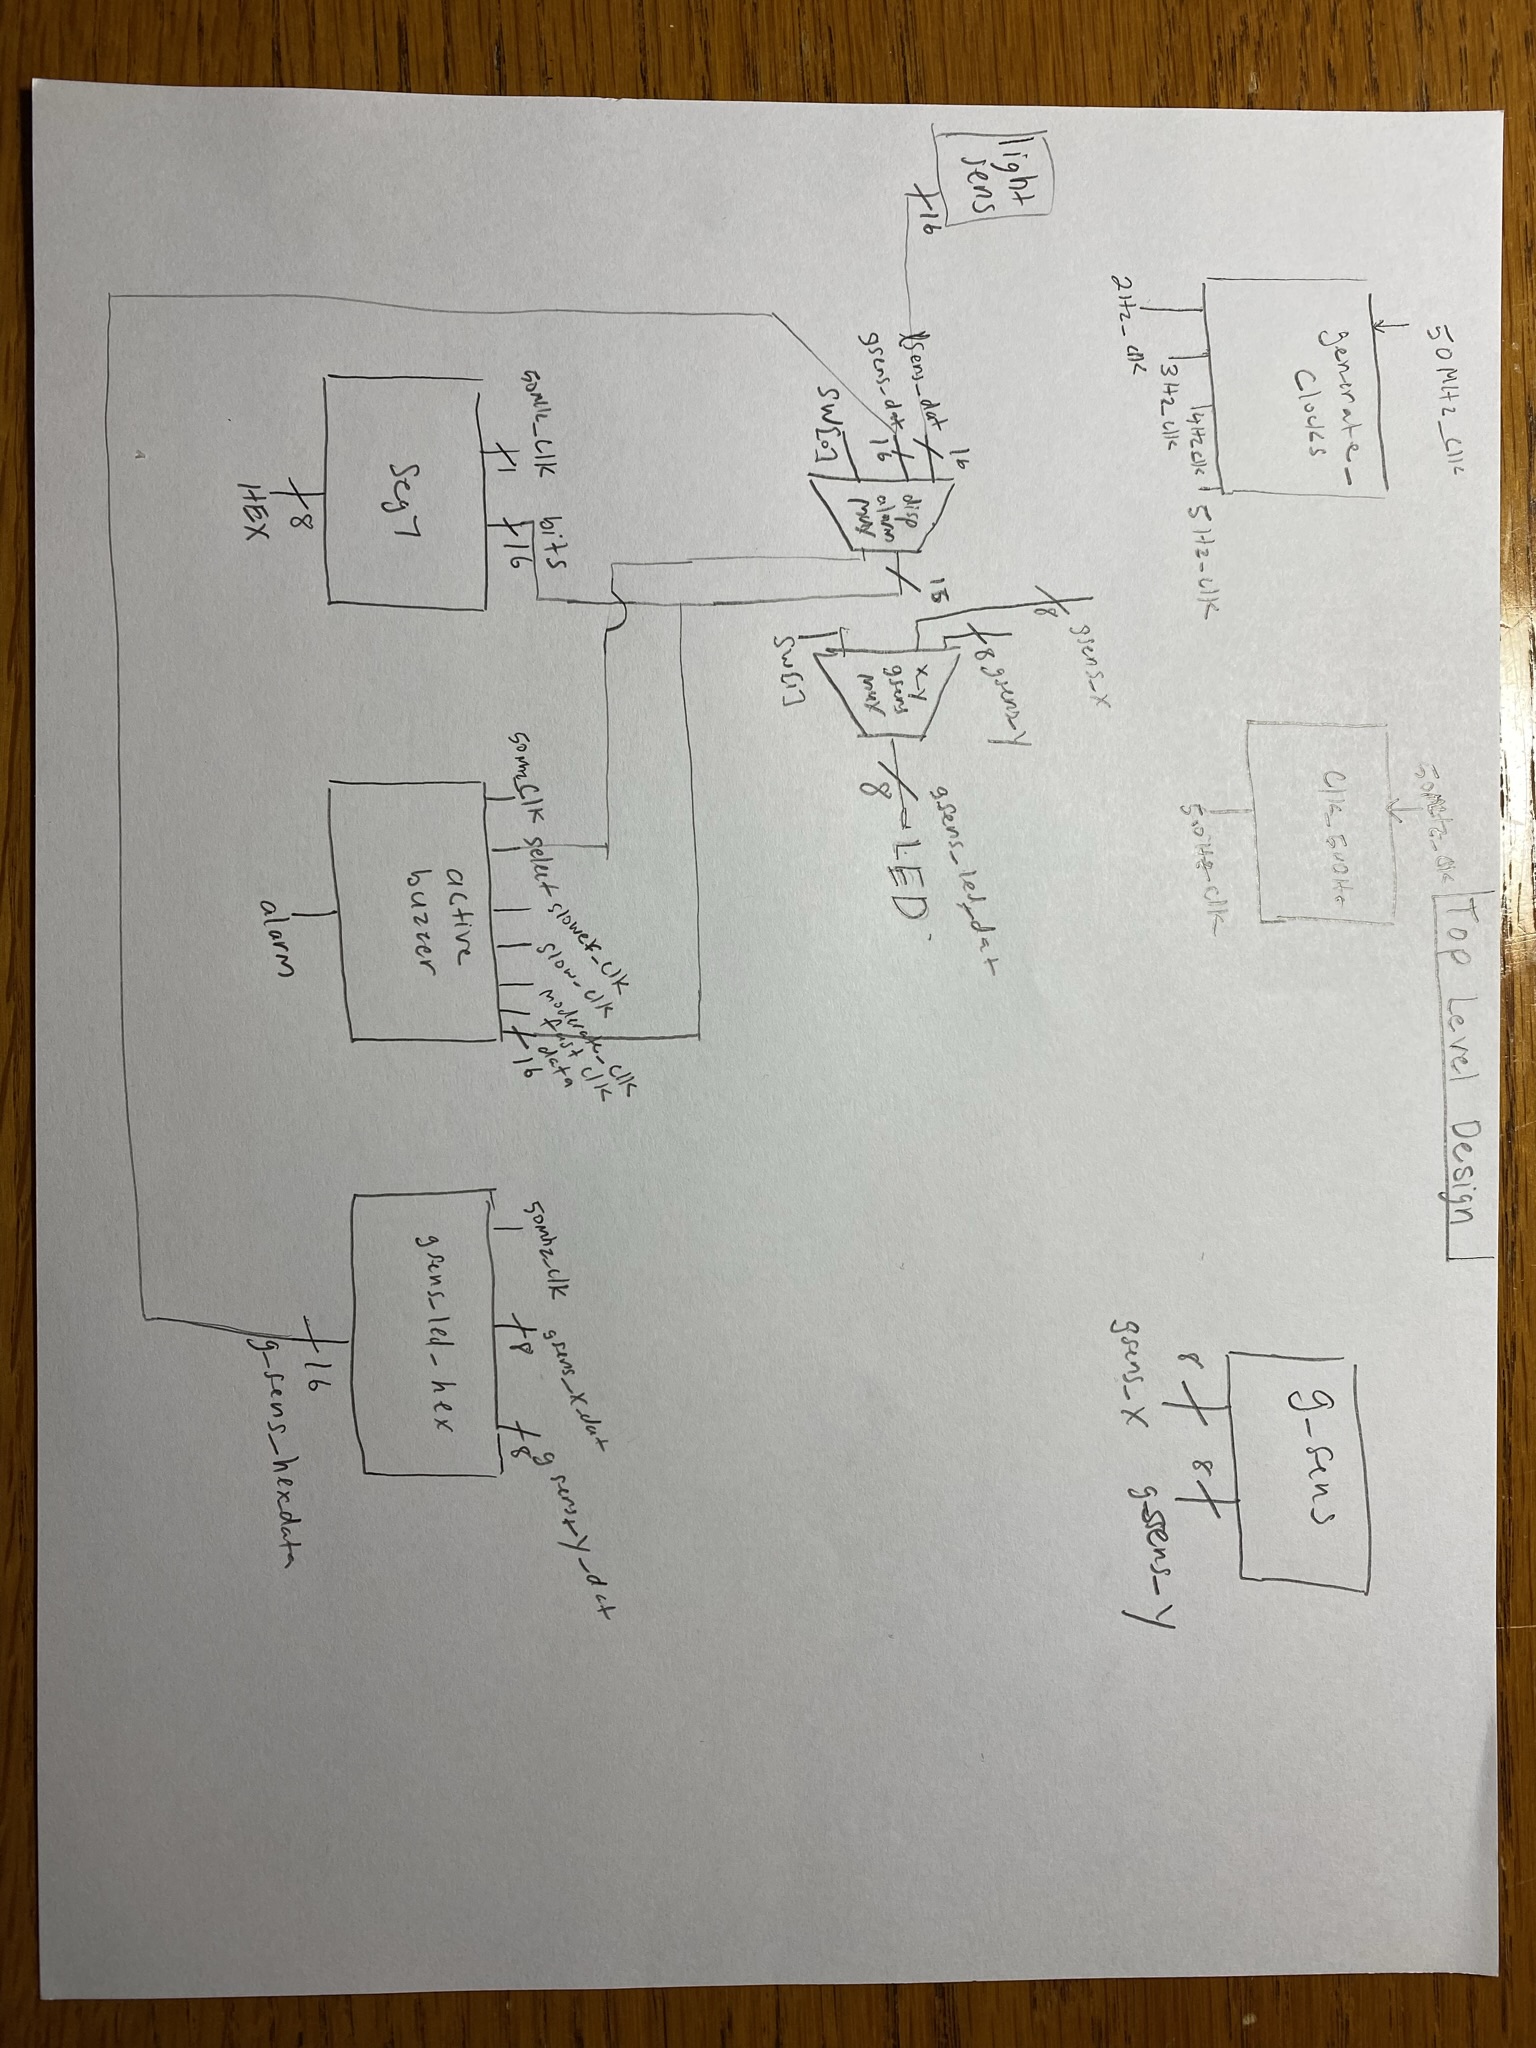 Top Level Design
50MHz_Clk
generate_
Clocks
2Hz_clk
3Hz_clk
4Hz clk
5Hz_clk
50MHz_clk
Clk_500Hz
500Hz_clk
g_sens
8
8
gsens_x
g_sens_y
light
sens
16
lsens_dat
16
gsens_dat
16
SW[0]
disp
alarm
mux
gsens_x
8
8 gsens_y
x_y
gsens
mux
SW[1]
gsens_led_dat
8
LED
50MHz_Clk
1
bits
16
Seg7
8
HEX
50Mhz_Clk
select
slower_clk
slow_clk
moderate_clk
fast clk
data
16
active
buzzer
alarm
50Mhz_Clk
gsens_x_dat
8
gsens_y_dat
8
gsens_led_hex
16
g_sens_hexdata